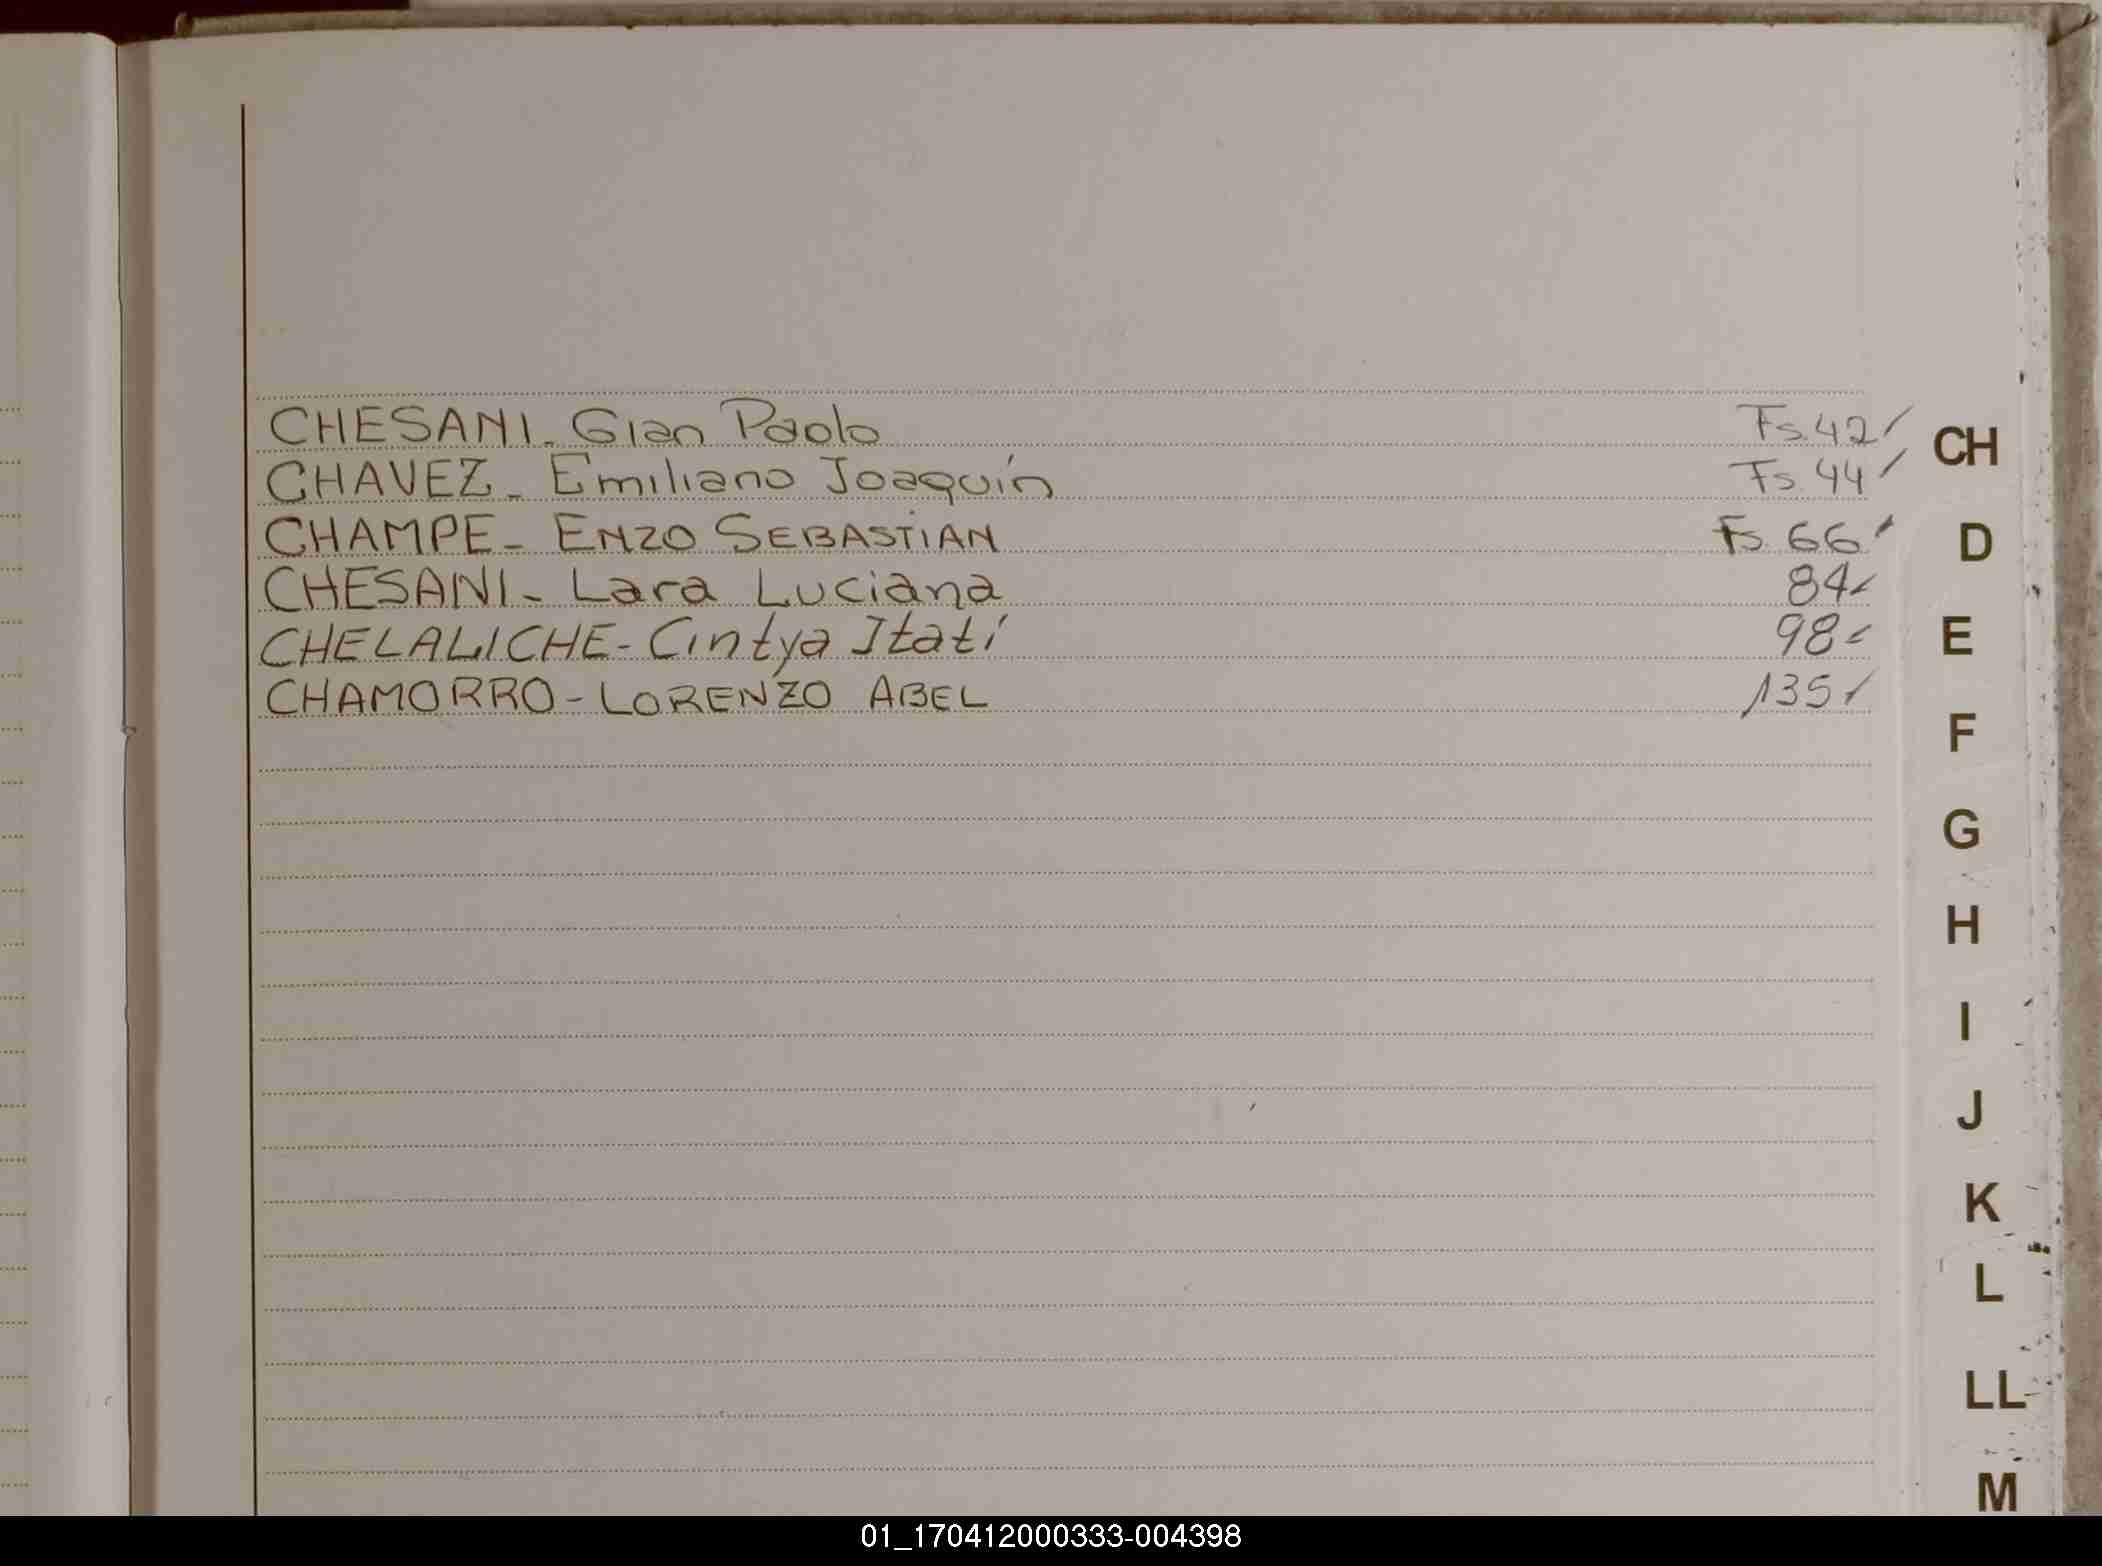 CHESANI - Gian Paolo Fs. 42
CHAVEZ - Emiliano Joaquín Fs. 44
CH
CHAMPE - ENZO SEBASTIAN Fs. 66
D
CHESANI - Lara Luciana 84
CHELALICHE - Cintya Itatí 98
E
CHAMORRO - LORENZO ABEL 135
F
G
H
I
J
K
L
LL
M
01_170412000333-004398